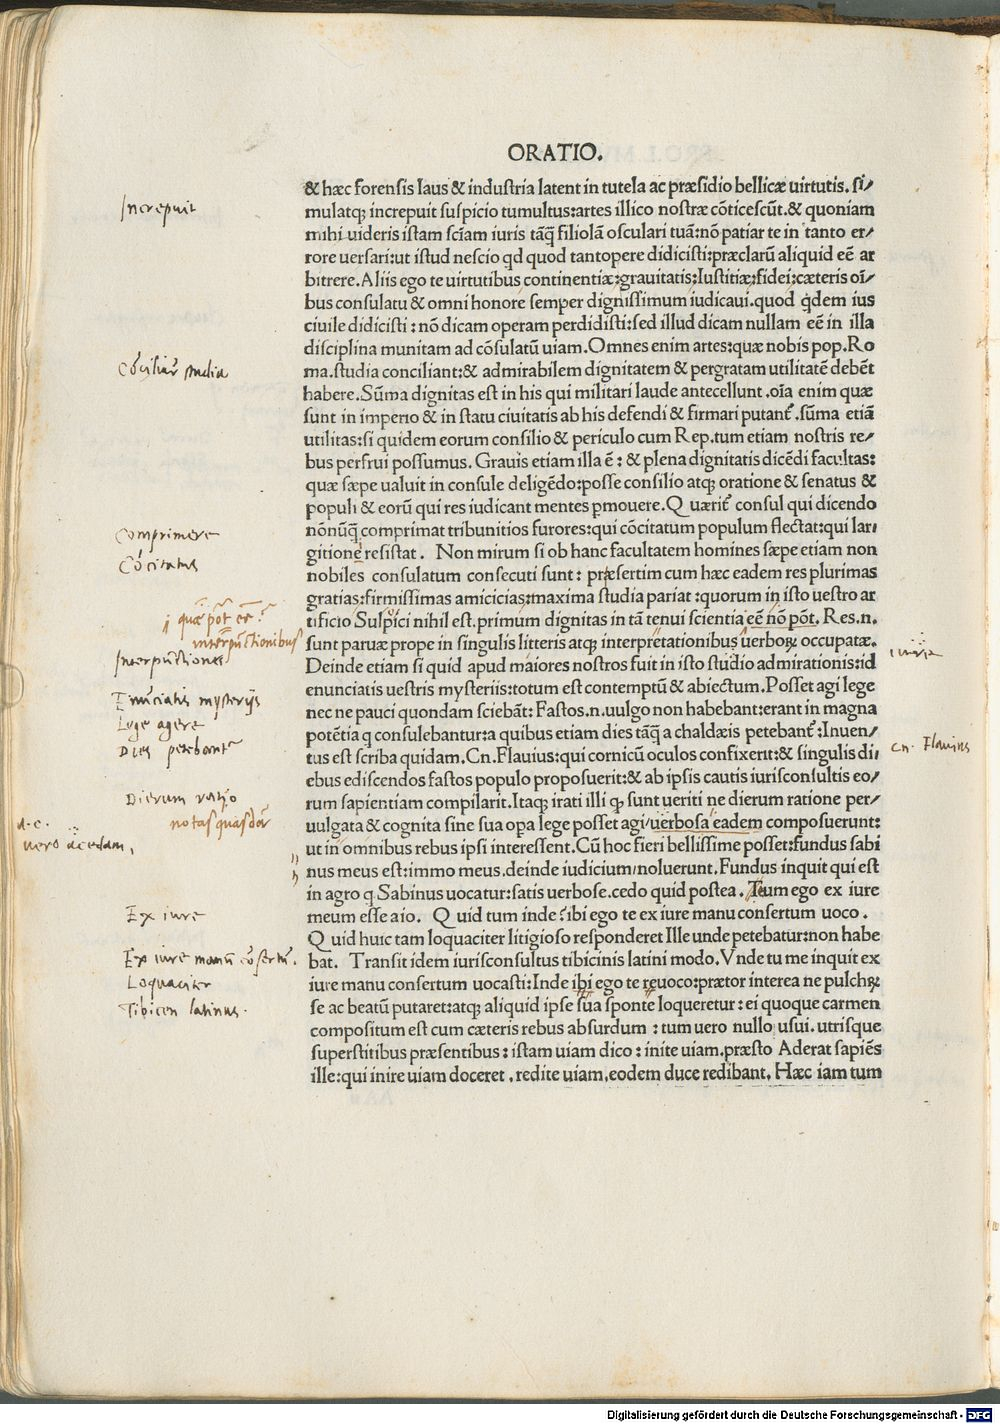 ORATIO.
& hæc forensis laus & industria latent in tutela ac præsidio bellicæ uirtutis. si/
mulatq; increpuit suspicio tumultus: artes illico nostræ cōticescūt. & quoniam
mihi uideris istam sciam iuris tāq̄ filiolā osculari tuā: nō patiar te in tanto er/
rore uersari: ut istud nescio qd quod tantopere didicisti: præclarū aliquid eē ar
bitrere. Aliis ego te uirtutibus continentiæ: grauitatis: Iustitiæ: fidei: cæteris oī/
bus consulatu & omni honore semper dignissimum iudicaui. quod q̇dem ius
ciuile didicisti: nō dicam operam perdidisti: sed illud dicam nullam eē in illa
disciplina munitam ad cōsulatū uiam. Omnes enim artes: quæ nobis pop. Ro
ma. studia conciliant: & admirabilem dignitatem & pergratam utilitatē debēt
habere. Sūma dignitas est in his qui militari laude antecellunt. oīa enim quæ
sunt in imperio & in statu ciuitatis ab his defendi & firmari putant̄. sūma etiā
utilitas: si quidem eorum consilio & periculo cum Rep. tum etiam nostris re/
bus perfrui possumus. Grauis etiam illa ē: & plena dignitatis dicēdi facultas:
quæ sæpe ualuit in consule deligēdo: posse consilio atq; oratione & senatus &
populi & eorū qui res iudicant mentes ꝑmouere. Quærit̄ consul qui dicendo
nōnūq̄ comprimat tribunitios furores: qui cōcitatum populum flectat: qui lar/
gitione resistat. Non mirum si ob hanc facultatem homines sæpe etiam non
nobiles consulatum consecuti sunt: præsertim cum hæc eadem res plurimas
gratias: firmissimas amicicias: maxima studia pariat: quorum in isto uestro ar
tificio Sulpici nihil est. primum dignitas in tā tenui scientia eē nō pōt. Res. n.
sunt paruæ prope in singulis litteris atq; interpretationibus uerboꝝ occupatæ.
Deinde etiam si quid apud maiores nostros fuit in isto studio admirationis: id
enunciatis uestris mysteriis: totum est contemptū & abiectum. Posset agi lege
nec ne pauci quondam sciebāt: Fastos. n. uulgo non habebant: erant in magna
potētia q consulebantur: a quibus etiam dies tāq̄ a chaldæis petebant̄: Inuen/
tus est scriba quidam. Cn. Flauius: qui cornicū oculos confixerit: & singulis di/
ebus ediscendos fastos populo proposuerit: & ab ipsis cautis iurisconsultis eo/
rum sapientiam compilarit. Itaq; irati illi ꝙ sunt ueriti ne dierum ratione per/
uulgata & cognita sine sua opa lege posset agi/ uerbosa eadem composuerunt:
ut in omnibus rebus ipsi interessent. Cū hoc fieri bellissime posset: fundus sabi
nus meus est: immo meus. deinde iudicium/ noluerunt. Fundus inquit qui est
in agro q Sabinus uocatur: satis uerbose. cedo quid postea. Teum ego ex iure
meum esse aio. Quid tum inde? ibi ego te ex iure manu consertum uoco.
Quid huic tam loquaciter litigioso responderet Ille unde petebatur: non habe
bat. Transit idem iurisconsultus tibicinis latini modo. Vnde tu me inquit ex
iure manu consertum uocasti: Inde ibi ego te reuoco: prætor interea ne pulchꝝ
se ac beatū putaret: atq; aliquid ipse sua sponte loqueretur: ei quoque carmen
compositum est cum cæteris rebus absurdum: tum uero nullo usui. utrisque
superstitibus præsentibus: istam uiam dico: inite uiam. præsto Aderat sapiēs
ille: qui inire uiam doceret. redite uiam. eodem duce redibant. Hæc iam tum
Increpuit
Cōciliāt studia
Comprimere
Cōcitatus
quæ pōt eē?
interpūctionibus
Interpūctiones
Enūciatis mysterijs
Lege agere
Dies petebant̄
Dierum ratio
notas quasdā
Ex iure
Ex iure manū cōsertū.
Loquaciter
Tibicen latinus.
Cn. Flauius
Digitalisierung gefördert durch die Deutsche Forschungsgemeinschaft - DFG